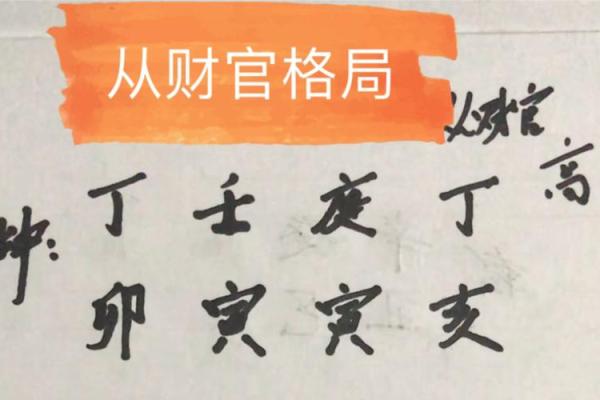 从财官格局
从财官
高
坤：
丁壬庚丁
卯寅寅亥